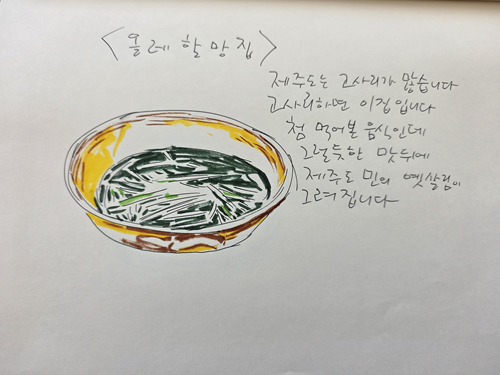 <올레 할망집>
제주도는 고사리가 많습니다
고사리하면 이집입니다
첨 먹어본 음식인데
그럴듯한 맛뒤에
제주도 민의 옛살림이
그려집니다